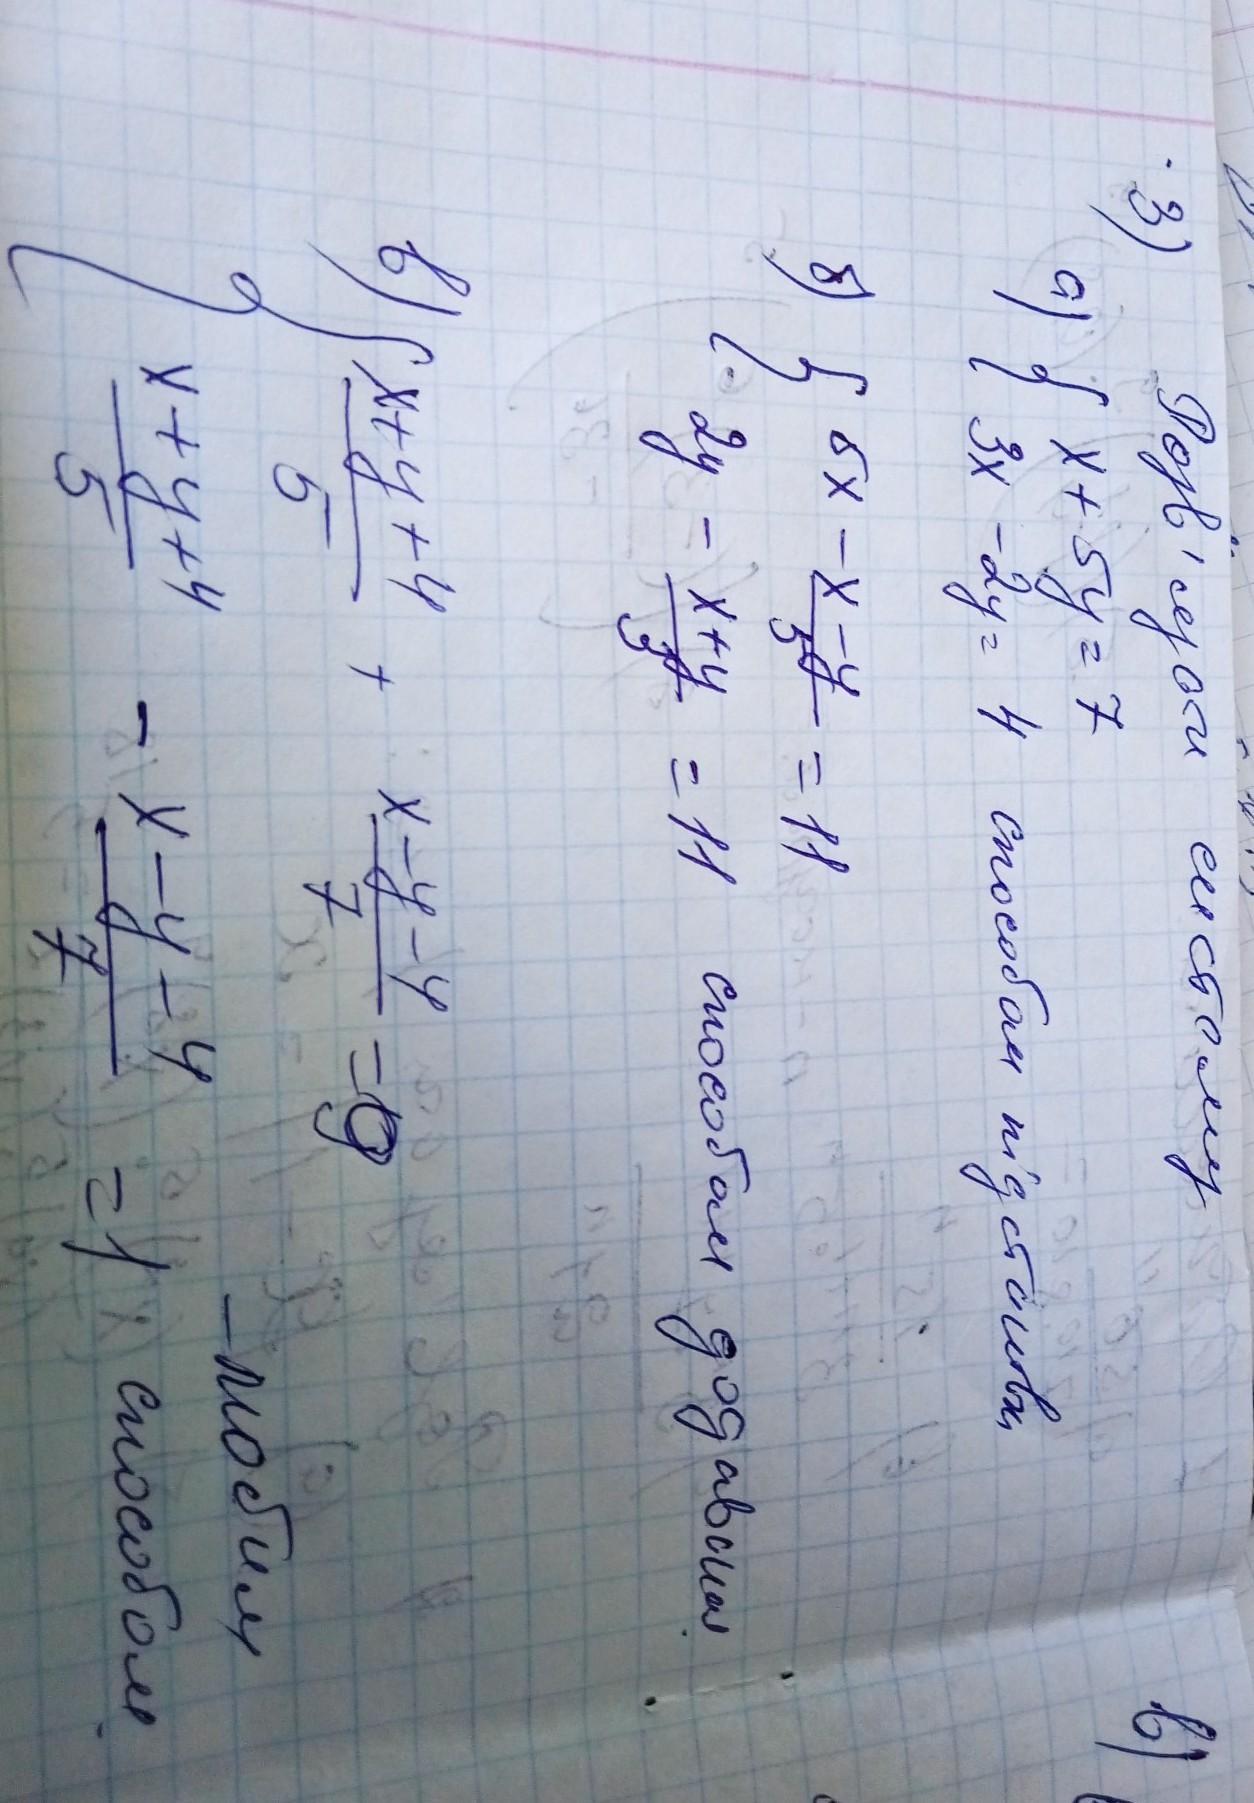 3) Розв'язати систему
а) { x + 5y = 7
3x - 2y = 4 способом підстановки
б) { 5x - \frac{x-y}{5} = 11
2y - \frac{x+y}{3} = 11 способом додавання
в) { \frac{x+y+4}{5} + \frac{x-y-4}{7} = 9
\frac{x+y+4}{5} - \frac{x-y-4}{7} = 1 - любим
способом.
в)